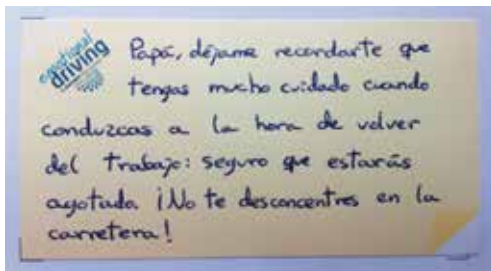 emotional
driving
Papá, déjame recordarte que
tengas mucho cuidado cuando
conduzcas a la hora de volver
del trabajo: seguro que estarás
agotado. ¡No te desconcentres en la
carretera!